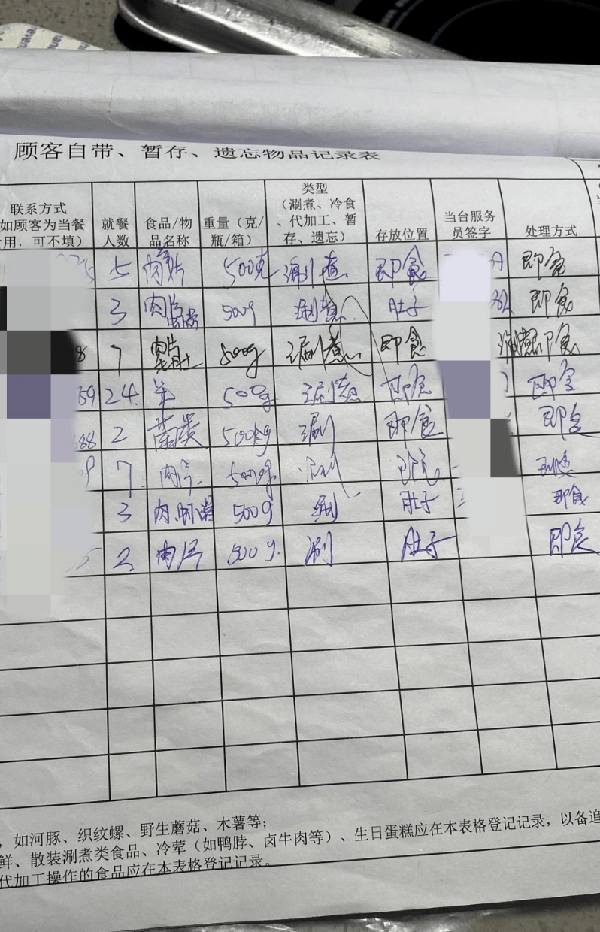 顾客自带、暂存、遗忘物品记录表
联系方式 就餐 食品/物 重量（克/ 类型 存放位置 当台服务 处理方式
如顾客为当餐 人数 品名称 瓶/箱） （涮煮、冷食 员签字
用，可不填） 、代加工、暂
存、遗忘）
五 肉片 500克 涮煮 即食 即食
3 肉片 500g 涮煮 肚子 即食
7 500g 涮煮 即食 即食
59 24 500g 涮煮 即食 即食
88 2 500g 涮 即食 即食
9 7 肉片 500g 涮
3 500g 涮 肚子 即食
2 肉片 500g 涮 肚子 即食
，如河豚、织纹螺、野生蘑菇、木薯等；
鲜、散装涮煮类食品、冷荤（如鸭脖、卤牛肉等）、生日蛋糕应在本表格登记记录，以备追
代加工操作的食品应在本表格登记记录。